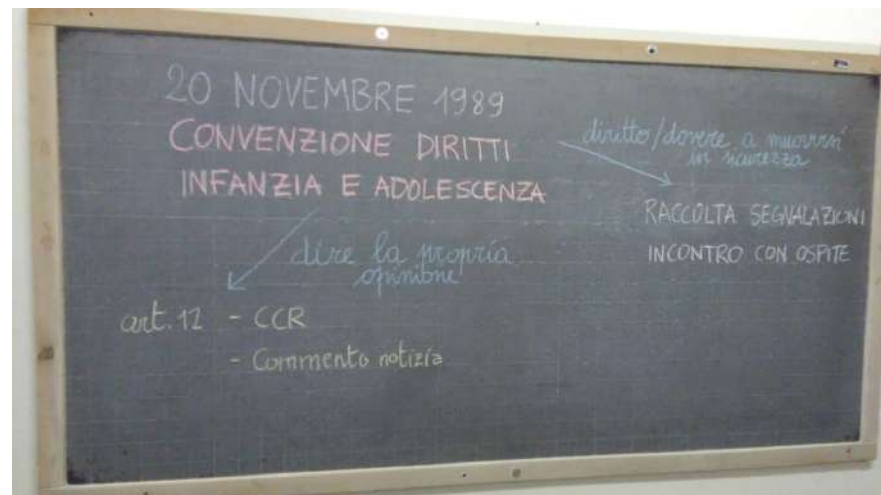 20 NOVEMBRE 1989
CONVENZIONE DIRITTI
INFANZIA E ADOLESCENZA
diritto/dovere a muoversi
in sicurezza
RACCOLTA SEGNALAZIONI
INCONTRO CON OSPITE
dire la propria
opinione
art. 12 - CCR
- Commento notizia